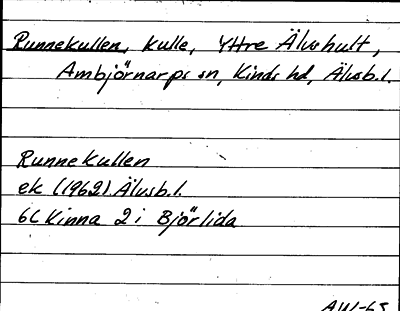 Runnekullen, kulle, Yttre Älvshult,
Ambjörnarps sn, Kinds hd, Älvsb.l.
Runnekullen
ek (1962) Älvsb.l.
6C Kinna 2 i Björlida